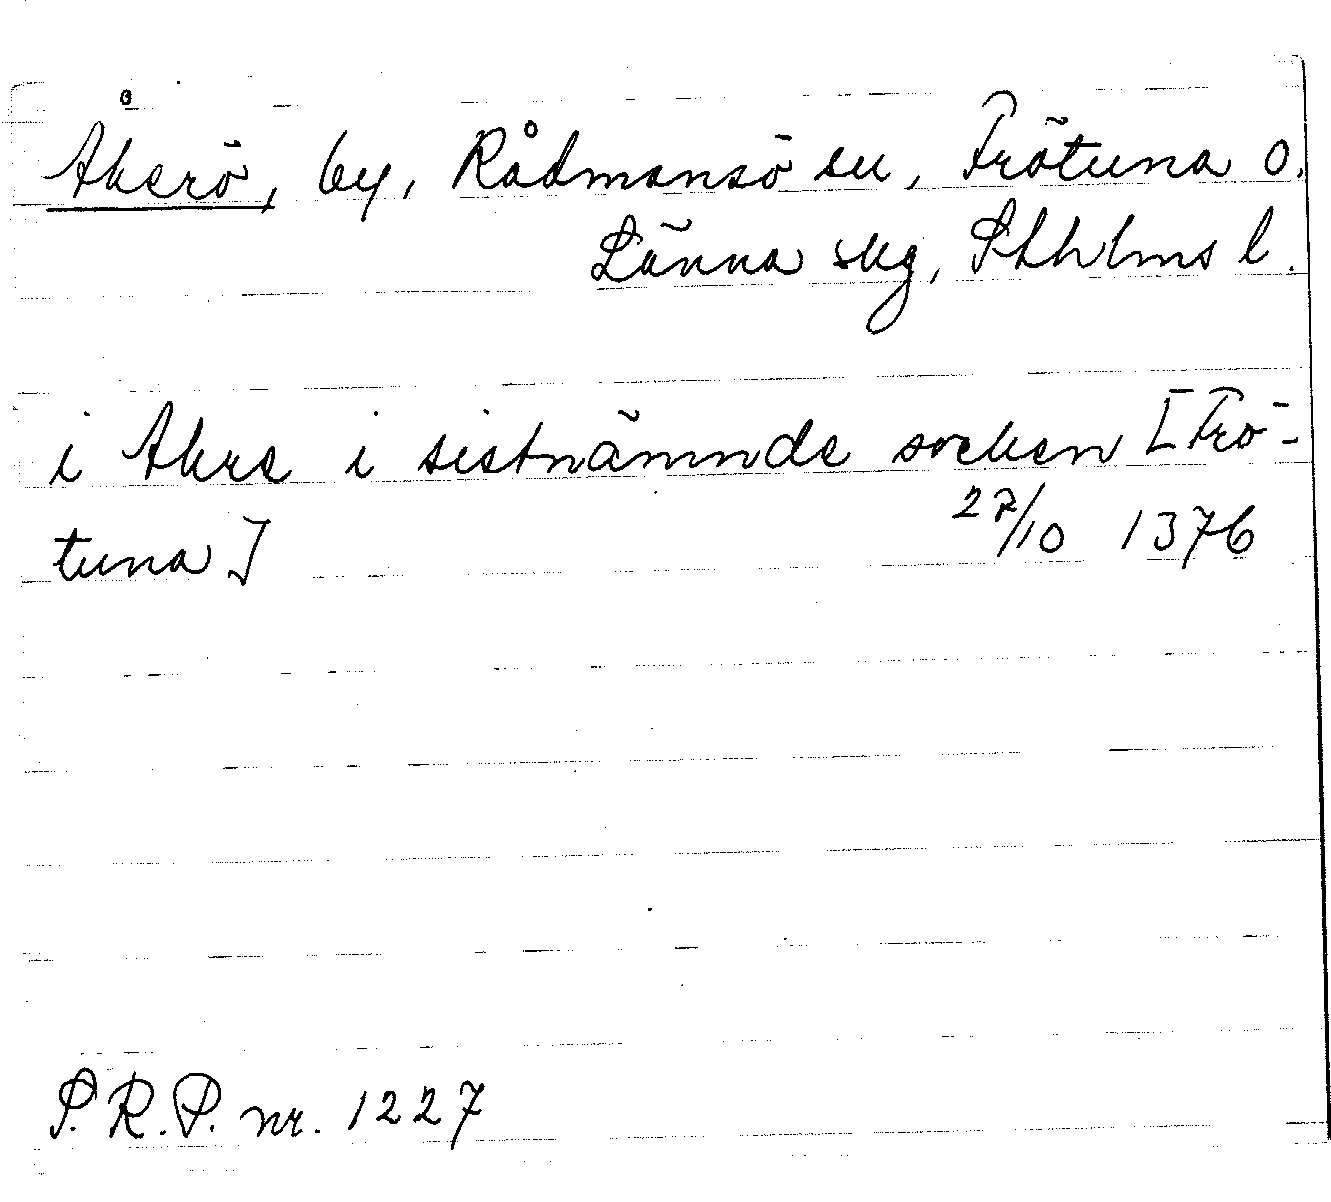 Åkerö, by, Rådmansö sn, Frötuna o.
Länna skg, Sthlms l.
i Akre i sistnämnde socken [Frö-
tuna]
27/10 1376
S.R.P. nr. 1227